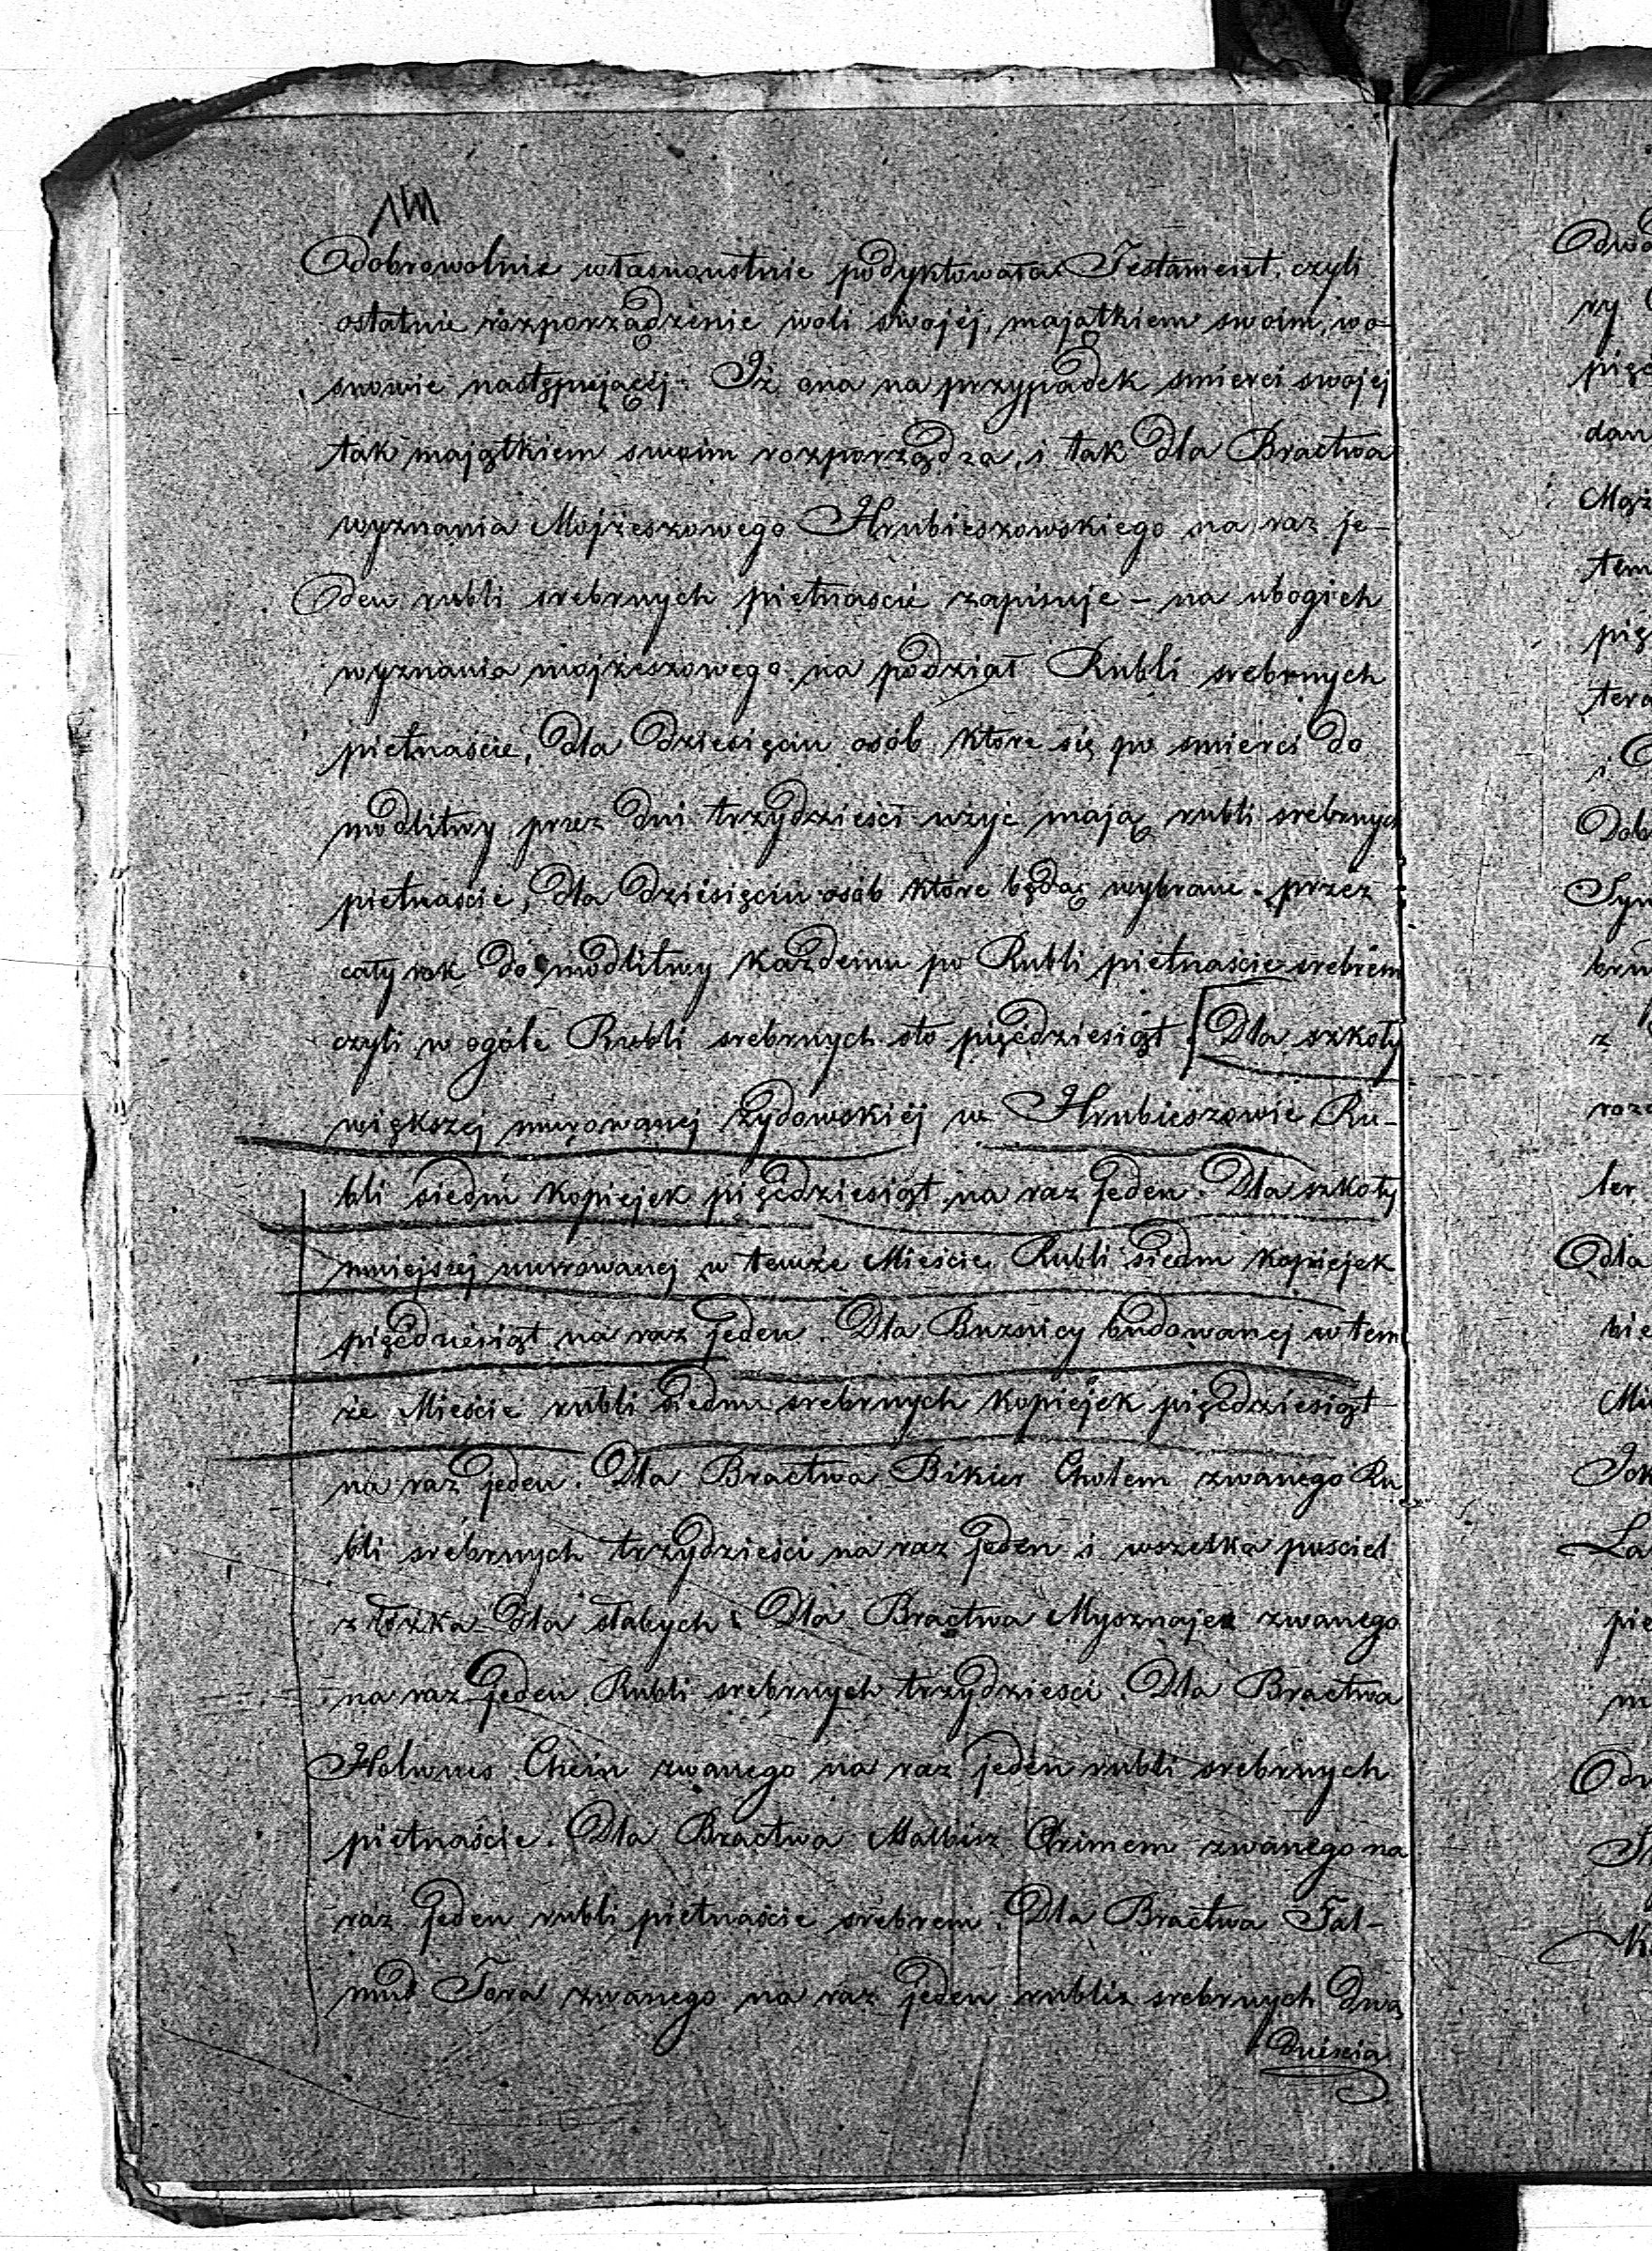 dobrowolnie własnoustnie podyktowała Testament, czyli
ostatnie rozporządzenie woli swojéj, majątkiem swoim, w o-
snowie następującéj: Iż ona na przypadek smierci swojéj
tak majątkiem swoim rozporządza, i tak dla Bractwa
wyznania Mojżeszowego Hrubieszowskiego na raz je-
den rubli srebrnych piętnaście zapisuje – na ubogich
wyznania mojżeszowego na podział Rubli srebrnych
piętnaście, dla dziesięciu osób które się po smierci do
modlitwy przez dni trzydzieści użyć mają rubli srebrnych
piętnaście, dla dziesięciu osób które będą wybrane przez
cały rok do modlitwy każdemu po Rubli piętnaście srebrem
czyli w ogóle Rubli srebrnych sto pięćdziesiąt. [Dla szkoły
większej murowanej żydowskiéj w Hrubieszowie Ru-
bli siedm kopiejek pięćdziesiąt na raz jeden. Dla szkoły
mniejszej murowanej w temże Mieście Rubli siedm kopiejek
pięćdziesiąt na raz jeden. Dla Bużnicy budowanej w tem
że Mieście rubli siedm srebrnych kopiejek pięćdziesiąt
na raz jeden. Dla Bractwa Bikier Cholem zwanego Ru
bli srebrnych trzydzieści na raz jeden i wszelka pościel
z łóżka dla słabych. Dla Bractwa Mysznajes zwanego
na raz jeden Rubli srebrnych trzydzieści. Dla Bractwa
Holwues Chein zwanego na raz jeden rubli srebrnych
piętnaście. Dla Bractwa Malbisz Orimem zwanego na
raz jeden rubli piętnaście srebrem. Dla Bractwa Tal-
mud Tora zwanego na raz jeden rubli srebrnych dwa
dzieścia